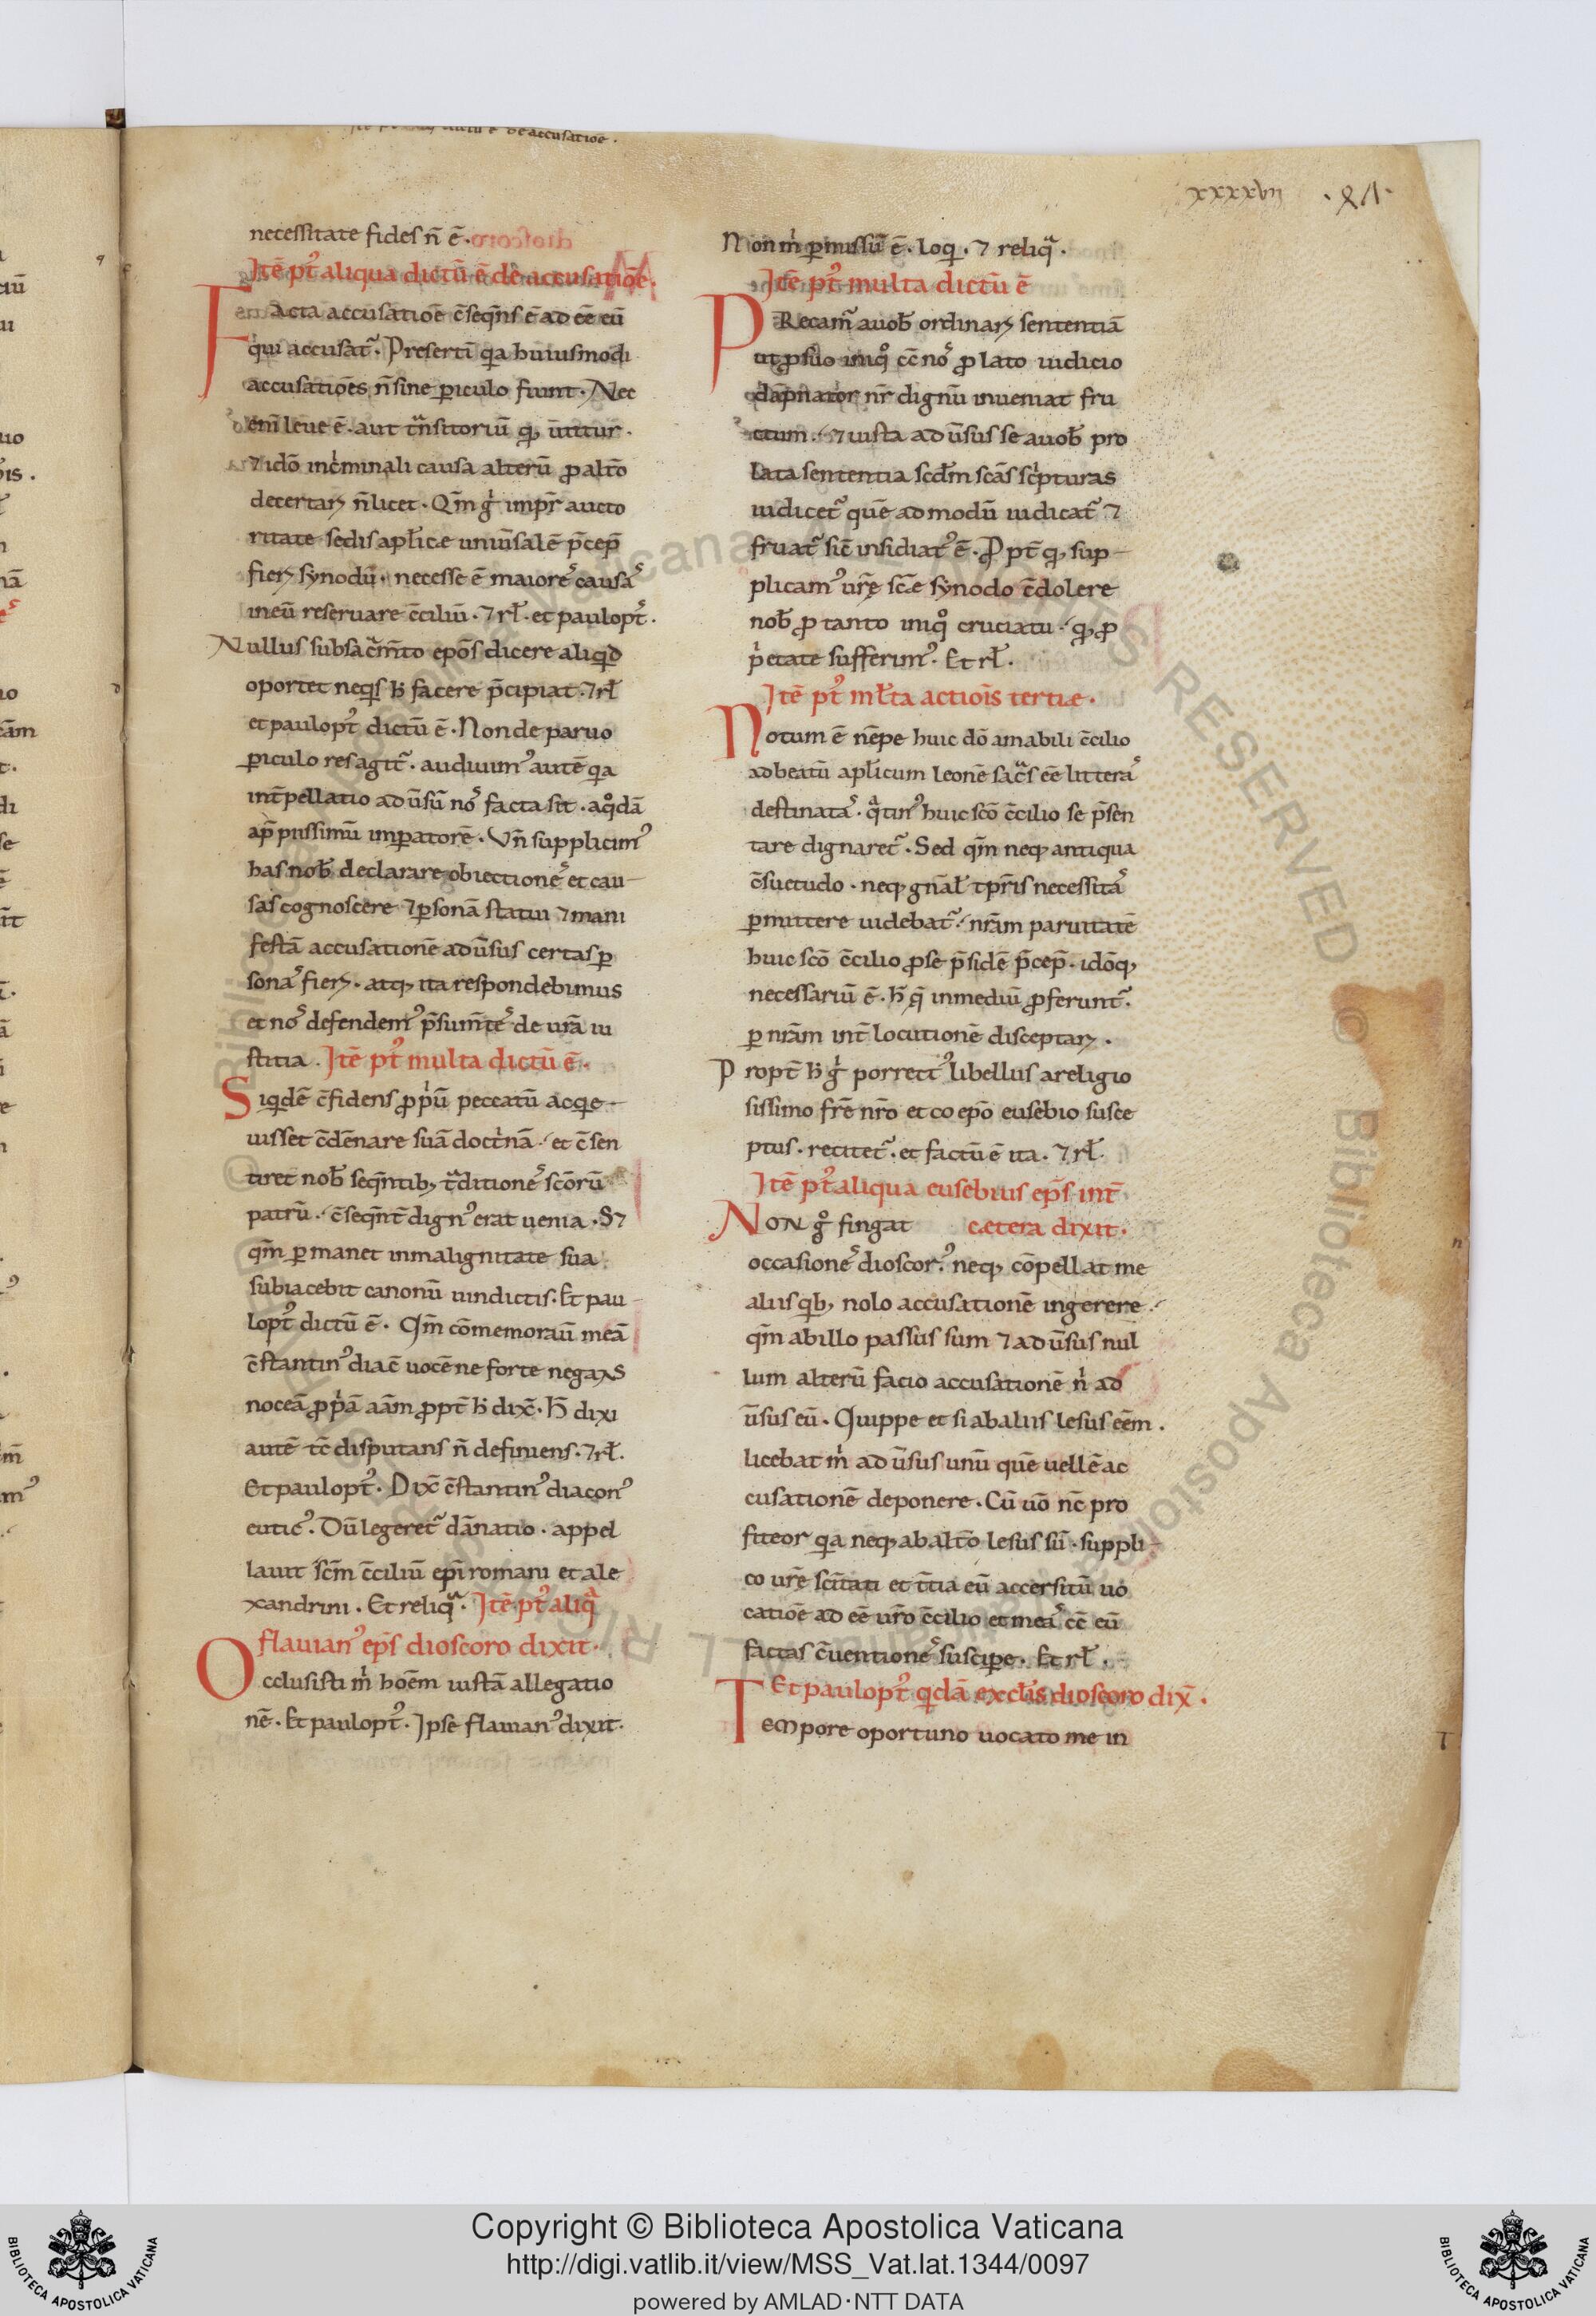 xxxxvii
necessitate fides n̄ ē.
Itē pꝰt aliqua dictū ē de accusatiōe.
Facta accusatiōe c̄seq̄ns ē ad eē eū
qui accusat᷑. Presertī qa huiusmodi
accusatiōes n̄ sine ꝑiculo fiunt. Nec
eni leue ē. aut t̄nsitoriū qꝫ utitur.
⁊ idō incminali causa alterū ꝓ altō
decertarꝫ n̄ licet. Qm̄ g impr̄ aucto
ritate sedis apł̄icæ uniūsalē p̄cep̄
fierꝫ synodū. necesse ē maiore᷒ causa᷒
in eū reseruare c̄ciliū. ⁊ rł. et paulopꝰt.
Nullus sub sacm̄to epōs dicere aliqd
oportet neqs h facere p̄cipiat. ⁊ rł
et paulopꝰt dictū ē. Non de paruo
ꝑiculo res agit᷑. audiuimꝰ autē qa
int̄pellatio adūsū no᷒ facta sit. a qͦdā
ap̄ piissimū imꝑatorē. Vn̄ supplicimꝰ
has nob̄ declarare obiectione᷒ et cau-
sas cognoscere ⁊ ꝑsonā statui ⁊ mani
festā accusationē adūsus certas ꝑ
sona᷒ fierꝫ. atqꝫ ita respondebimus
et no᷒ defendemꝰ p̄sum̄te᷒ de urā iu
stitia. Itē pꝰt multa dictū ē.
Siqdē c̄fidens ꝓpiū peccatū acqe-
uisset c̄dēnare suā doctinā. et c̄sen
tiret nob̄ seqn̄tibꝫ tͣditione᷒ scōrū
patrū. c̄seqn̄t dignꝰ erat uenia. S⁊
qm̄ ꝑmanet in malignitate sua
subiacebit canonū uindictis. Et pau-
lopꝰt dictū ē. Qm̄ cōmemorauī meā
c̄stantinꝰ diac̄ uocē ne forte negaꝛs
noceā ꝓpiā aām ꝓpt̄ h dix̄. H̄ dixi
autē tc̄ disputans n̄ definiens. ⁊ rł.
Et paulopꝰt. Dix̄ c̄stantinꝰ diaconꝰ
euticꝰ. Dū legeret᷑ dānatio. appel
lauit scm̄ c̄ciliū epī romani et ale
xandrini. Et reliqͣ. Itē pꝰt aliqͣ
flauianꝰ ep̄s dioscoro dixit.
Occlusisti m̍ hoēm iustā allegatio
nē. Et paulopꝰt. Ipse flauianꝰ dixit.
Non m̍ ꝑmissū ē. loqi. ⁊ reliqͣ.
Itē pꝰt multa dictū ē
PRecam᷑ auob̄ ordinarꝫ sententiā
ut ꝓ suo iniqͦ cc̄ no᷒ ꝓlato iudicio
dāpnatōr nr̄ dignū inueniat fru
ctum. ⁊ iusta adūsus se auob̄ pro
lata sententia scdm̄ scās scpturas
iudicet᷑ quē ad modū iudicat᷑ ⁊
fruat᷑ sic̄ insidiatꝰ ē. Ppt̄ qꝫ sup-
plicamꝰ ur̄ę scǣ synodo c̄dolere
nob̄ ꝓ tanto iniqͦ cruciatu. qꝫ ꝓ
pietate sufferimꝰ. Et rł.
Itē pꝰt mł̄ta actiois tertiæ.
Notum ē nēpe huic dō amabili c̄cilio
ad beatū apł̄icum leonē sacͣs eē littera᷒
destinata᷒. qͣtinꝰ huic scō c̄cilio se p̄sen
tare dignaret᷑. Sed qm̄ neqꝫ antiqua
c̄suetudo. neqꝫ gn̄al̄ tp̄ris necessita᷒
ꝑmittere uidebat᷑. nrām paruitatē
huic scō c̄cilio ꝓ se p̄sidē p̄cep̄. idōqꝫ
necessariū ē. h̄ q̄ in mediū ꝓferunt᷑.
ꝑ nrām int̄ locutionē disceptarꝫ.
Propt̄ h g porrectꝰ libellus a religio
sissimo frē nrō et coepō eusebio susce
ptus. recitet᷑. et factū ē ita. ⁊ rł.
Itē pꝰt aliqua eusebius ep̄s int̄
NON gͦ fingat cætera dixit.
occasione᷒ dioscorꝰ. neqꝫ cōpellat me
aliis qbꝫ nolo accusationē ingerere.
qm̄ ab illo passus sum ⁊ adūsus nul
lum alterū facio accusationē n̍ ad
ūsus eū. Quippe et si ab aliis lesus eēm.
licebat m̍ adūsus unū quē uellē ac
cusationē deponere. Cū uō nc̄ pro
fiteor qa neqꝫ ab altō lesus sū. suppli-
co ur̄e scītati et t̄tia eū accersitū uo
catiōē ad eē ur̄o c̄cilio et mea᷒ cc̄ eū
factas c̄uentione᷒ suscipe. Et rł.
Et paulopꝰt qdā excł̄is dioscoro dix̄.
TEMpore oportuno uocato me in
Copyright © Biblioteca Apostolica Vaticana
http://digi.vatlib.it/view/MSS_Vat.lat.1344/0097
powered by AMLAD·NTT DATA